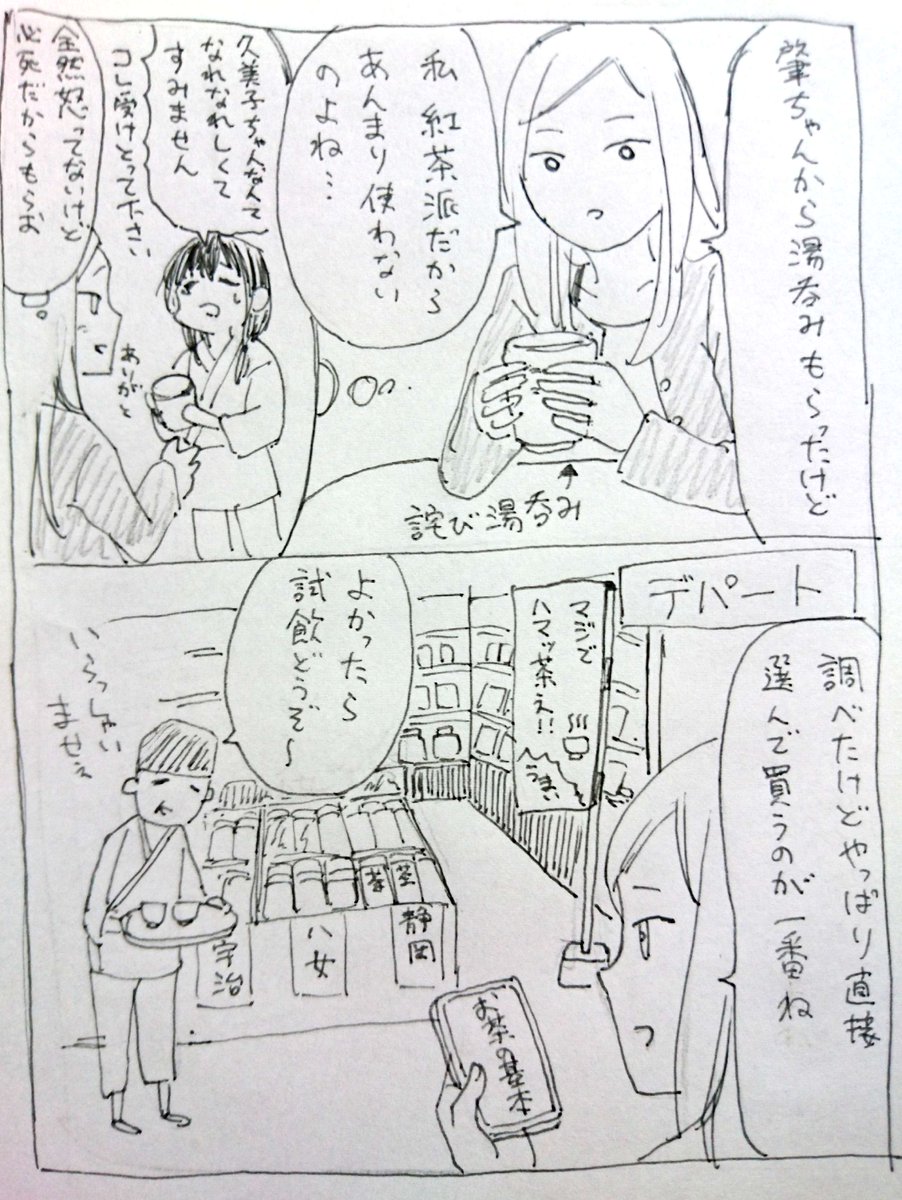 肇ちゃんから湯呑みもらったけど
私 紅茶派だから
あんまり使わない
のよね…
詫び湯呑み
久美子ちゃんなんて
なれなれしくて
すみません
コレ受けとって下さい
ありがと
全然怒ってないけど
必死だからもらお
デパート
調べたけどやっぱり直接
選んで買うのが一番ね
マジで
ハマッ茶え!!
うまい
よかったら
試飲どうぞ〜
いらっしゃい
ませぇ
茶
茎
静岡
八女
宇治
お茶の基本